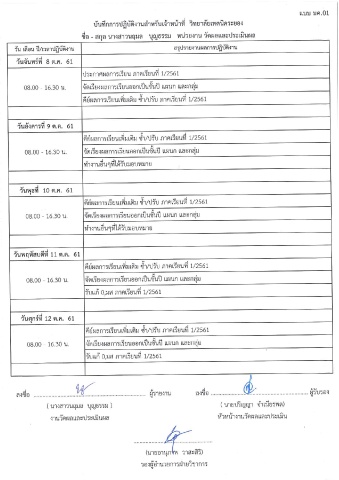 แบบ มค.01
บันทึกการปฏิบัติงานสำหรับเจ้าหน้าที่ วิทยาลัยเทคนิคระยอง
ชื่อ - สกุล นางสาวนฤมล บุญธรรม หน่วยงาน วัดผลและประเมินผล
วัน เดือน ปี/เวลาปฏิบัติงาน สรุปรายงานผลการปฏิบัติงาน
วันจันทร์ที่ 8 ต.ค. 61
ประกาศผลการเรียน ภาคเรียนที่ 1/2561
08.00 - 16.30 น. จัดเรียงผลการเรียนออกเป็นชั้นปี แผนก และกลุ่ม
คีย์ผลการเรียนเพิ่มเติม ซ้ำ/ปรับ ภาคเรียนที่ 1/2561
วันอังคารที่ 9 ต.ค. 61
คีย์ผลการเรียนเพิ่มเติม ซ้ำ/ปรับ ภาคเรียนที่ 1/2561
08.00 - 16.30 น. จัดเรียงผลการเรียนออกเป็นชั้นปี แผนก และกลุ่ม
ทำงานอื่นๆที่ได้รับมอบหมาย
วันพุธที่ 10 ต.ค. 61
คีย์ผลการเรียนเพิ่มเติม ซ้ำ/ปรับ ภาคเรียนที่ 1/2561
08.00 - 16.30 น. จัดเรียงผลการเรียนออกเป็นชั้นปี แผนก และกลุ่ม
ทำงานอื่นๆที่ได้รับมอบหมาย
วันพฤหัสบดีที่ 11 ต.ค. 61
คีย์ผลการเรียนเพิ่มเติม ซ้ำ/ปรับ ภาคเรียนที่ 1/2561
08.00 - 16.30 น. จัดเรียงผลการเรียนออกเป็นชั้นปี แผนก และกลุ่ม
รับแก้ 0,มส ภาคเรียนที่ 1/2561
วันศุกร์ที่ 12 ต.ค. 61
คีย์ผลการเรียนเพิ่มเติม ซ้ำ/ปรับ ภาคเรียนที่ 1/2561
08.00 - 16.30 น. จัดเรียงผลการเรียนออกเป็นชั้นปี แผนก และกลุ่ม
รับแก้ 0,มส ภาคเรียนที่ 1/2561
ลงชื่อ ผู้รายงาน ลงชื่อ ผู้รับรอง
( นางสาวนฤมล บุญธรรม )
งานวัดผลและประเมินผล หัวหน้างานวัดผลและประเมิน
รองผู้อำนวยการฝ่ายวิชาการ